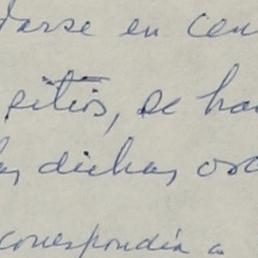 darse en cen
sitios, se ha
las dichas
correspondía a